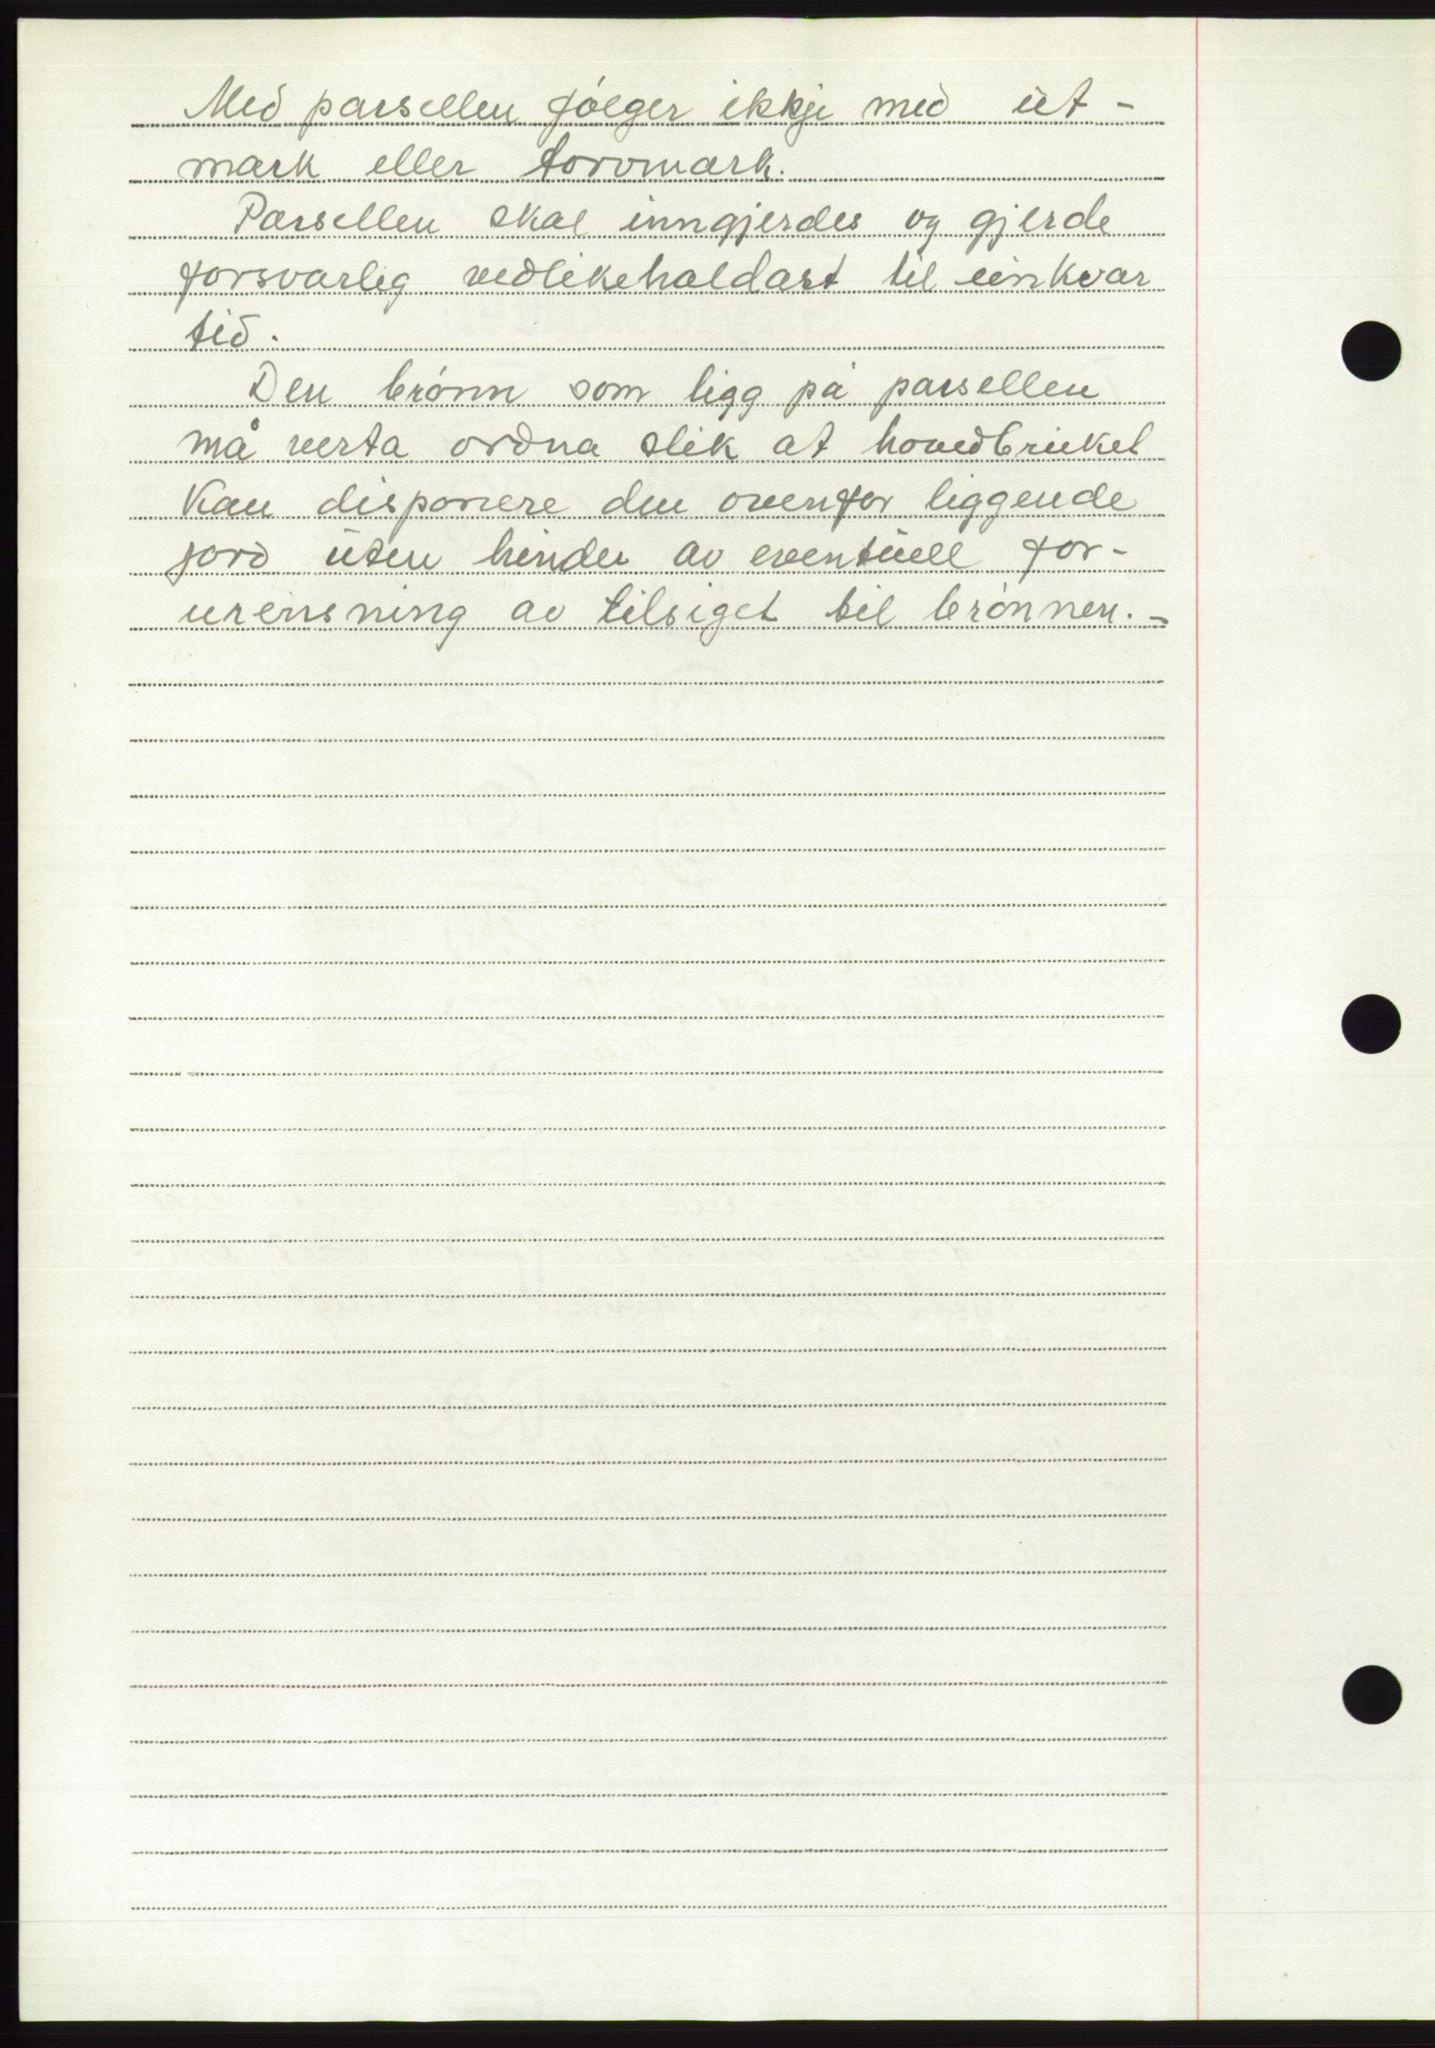 Med parsellen følger ikkje med ut-
mark eller torvmark.
Parsellen skal inngjerdes og gjerde
forsvarlig vedlikehaldast til einkvar
tid.
Den brønn som ligg på parsellen
må verta ordna slik at hovedbruket
kan disponere den ovenfor liggende
jord uten hinder av eventuell for-
urensning av tilsiget til brønnen.-